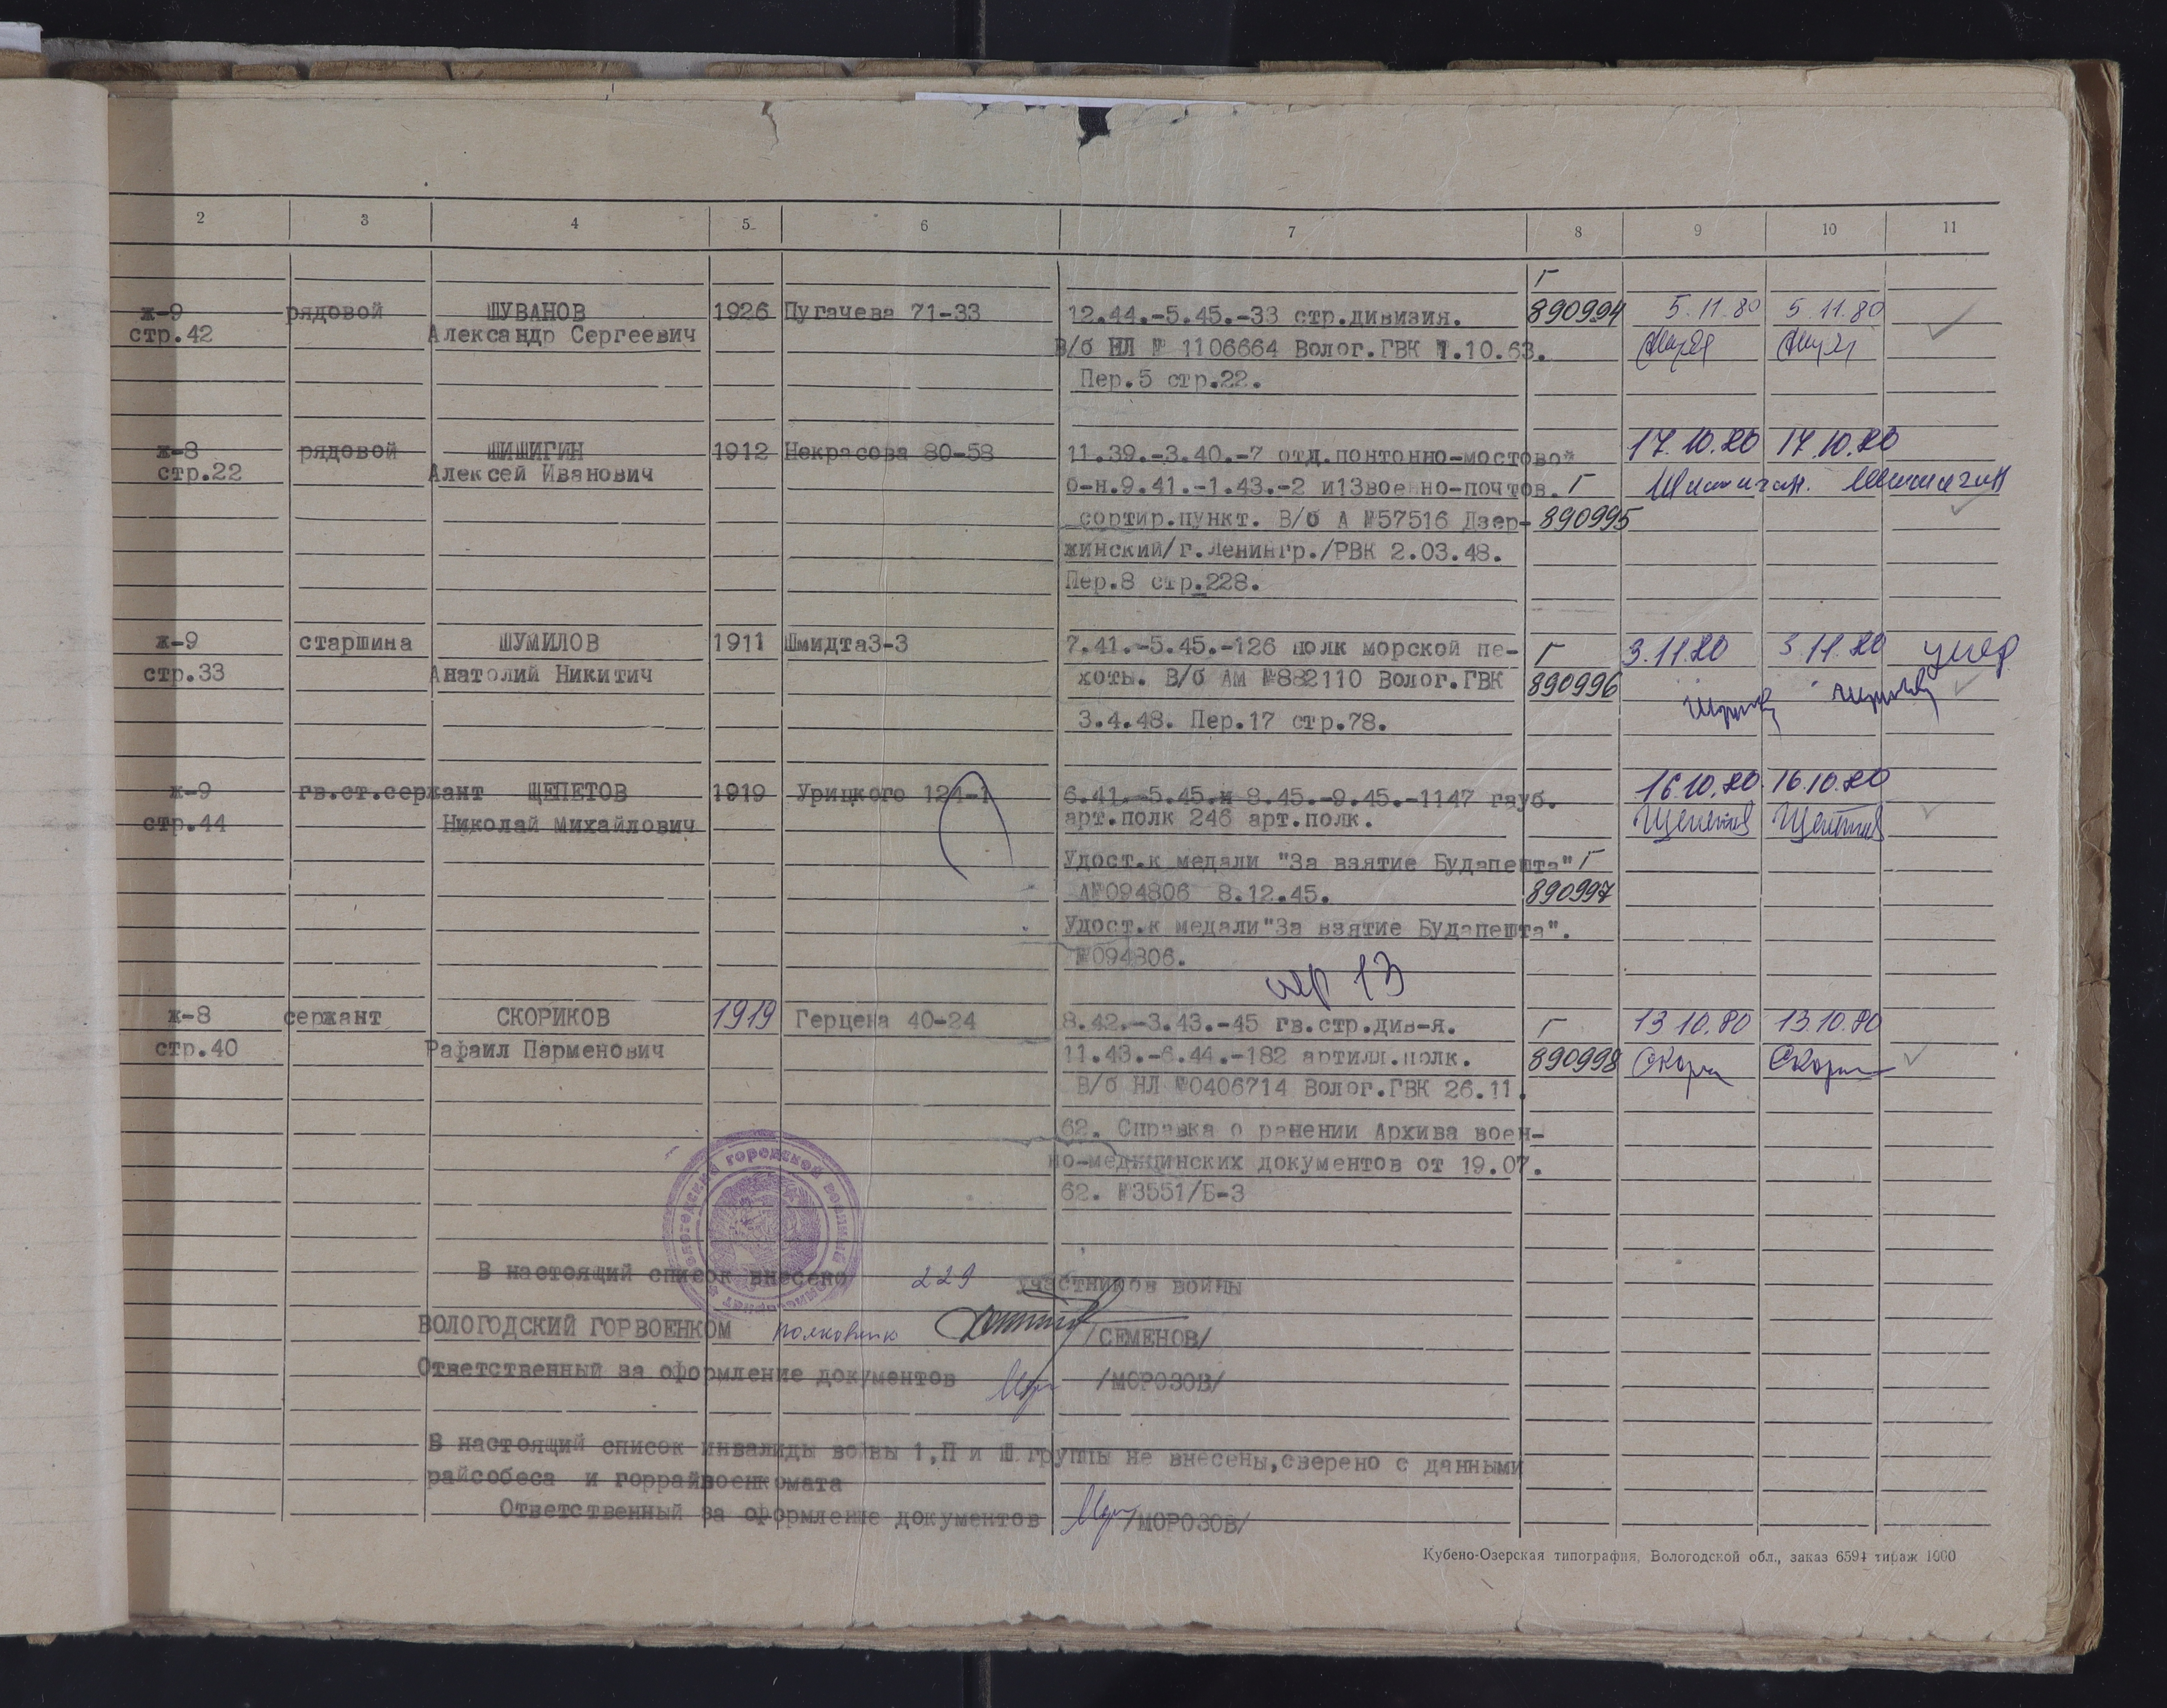 2 3 4 5 6 7 8 9 10 11
Г
ж-9 рядовой ШУВАНОВ 1926 Пугачева 71-33 12.44.-5.45.-33 стр.дивизия. 890994 5.11.80 5.11.80
стр.42 Александр Сергеевич
В/б НЛ № 1106664 Волог.ГВК 1.10.63.
Пер.5 стр.22.
ж-8 рядовой ШИШИГИН 1912 Некрасова 80-58 11.39.-3.40.-7 отд.понтонно-мостовой 17.10.80 17.10.80
стр.22 Алексей Иванович
б-н.9.41.-1.43.-2 и13военно-почтов. Г Шишигин. Шишигин
сортир.пункт. В/б А №57516 Дзер- 890995
жинский/г.Ленингр./РВК 2.03.48.
Пер.8 стр.228.
ж-9 старшина ШУМИЛОВ 1911 Шмидта3-3 7.41.-5.45.-126 полк морской пе- Г 3.11.80 3.11.80 умер
стр.33 Анатолий Никитич хоты. В/б АМ №882110 Волог.ГВК 890996
3.4.48. Пер.17 стр.78.
ж-9 гв.ст.сержант ЩЕПЕТОВ 1919 Урицкого 124-1 6.41.-5.45.и 8.45.-9.45.-1147 гауб. 16.10.80 16.10.80
стр.44 Николай Михайлович арт.полк 246 арт.полк. Щепетов Щепетов
Удост.к медали "За взятие Будапешта" Г
А№094806 8.12.45. 890997
Удост.к медали"За взятие Будапешта".
№094806.
пер 13
ж-8 сержант СКОРИКОВ 1919 Герцена 40-24 8.42.-3.43.-45 гв.стр.див-я. Г 13.10.80 13.10.80
стр.40 Рафаил Парменович 11.43.-6.44.-182 артилл.полк. 890998 Скори Скори
В/б НЛ №0406714 Волог.ГВК 26.11.
62. Справка о ранении Архива воен-
но-медицинских документов от 19.07.
62. №3551/Б-3
Вологодский городской военный комиссариат
В настоящий список внесено 229 участников войны
ВОЛОГОДСКИЙ ГОРВОЕНКОМ полковник /СЕМЕНОВ/
Ответственный за оформление документов /МОРОЗОВ/
В настоящий список инвалиды войны 1,П и Ш группы не внесены,сверено с данными
райсобеса и горрайвоенкомата
Ответственный за оформление документов /МОРОЗОВ/
Кубено-Озерская типография, Вологодской обл., заказ 6594 тираж 1000